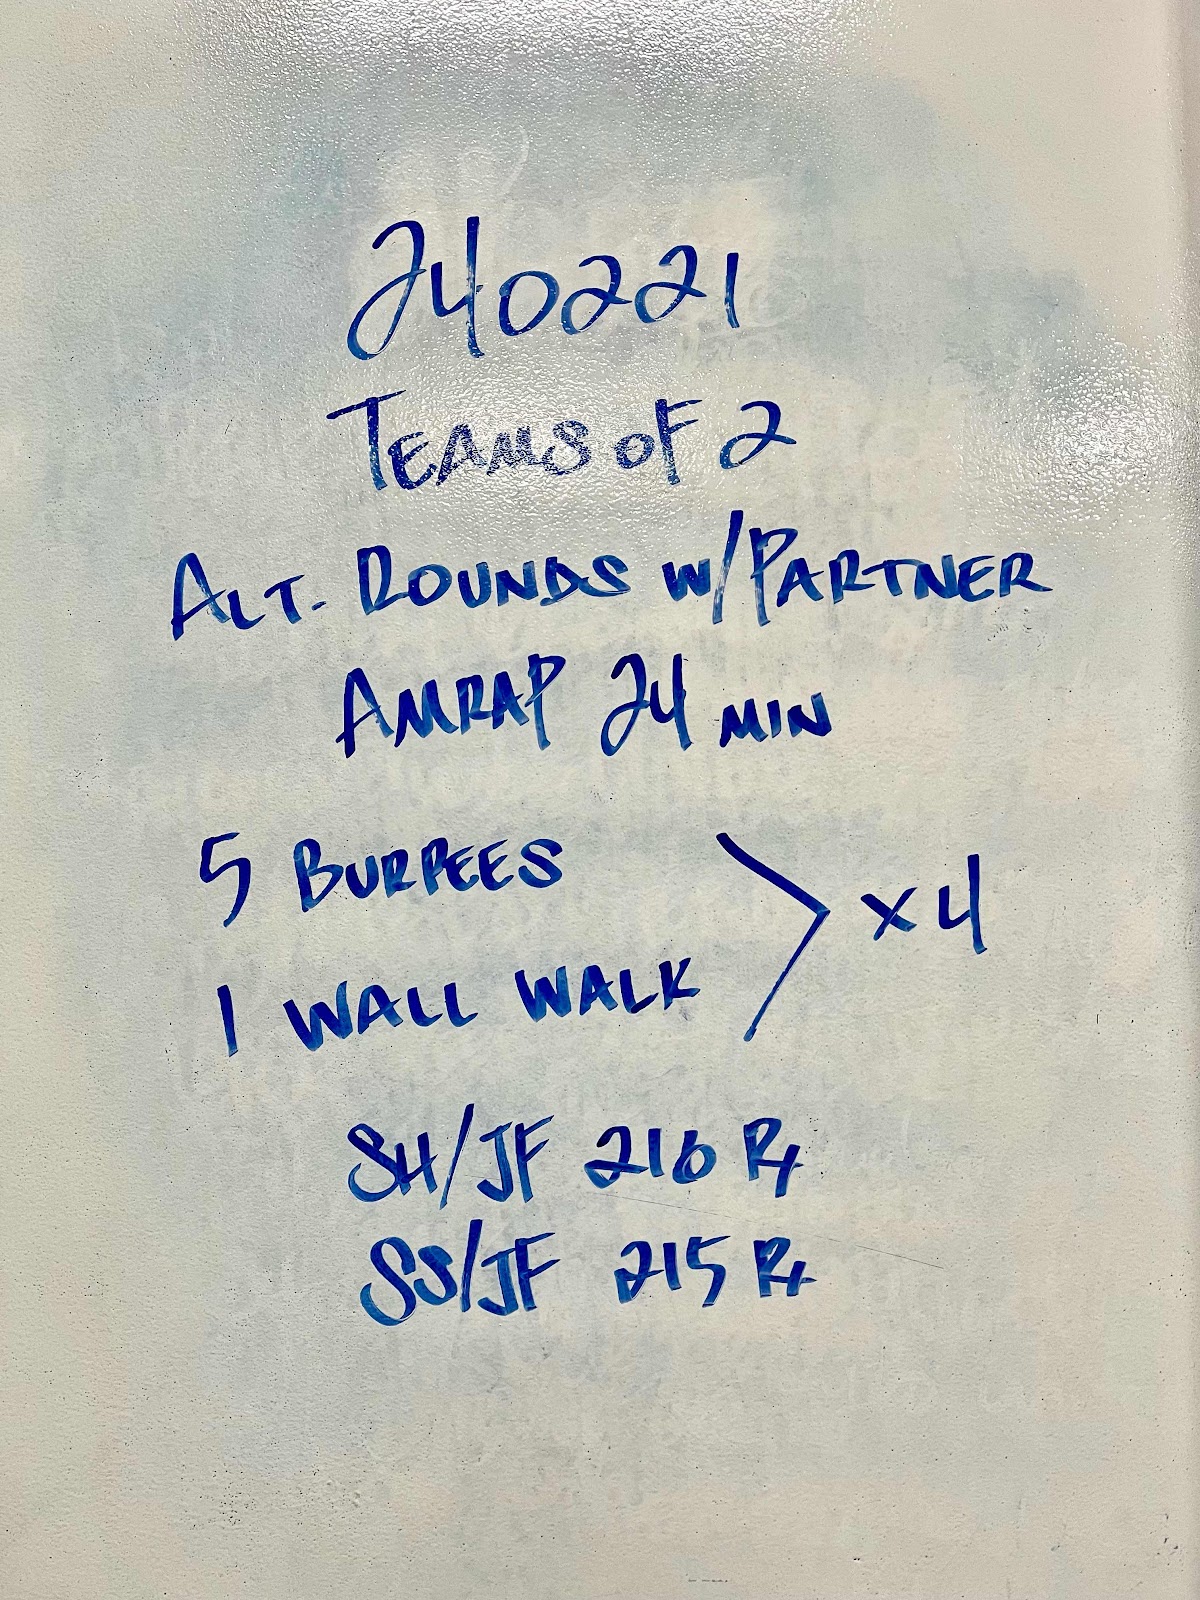 240221
TEAMS OF 2
ALT. ROUNDS W/PARTNER
AMRAP 24 MIN
5 BURPEES
1 WALL WALK > x 4
SH/JF 216 Rx
SS/JF 215 Rx